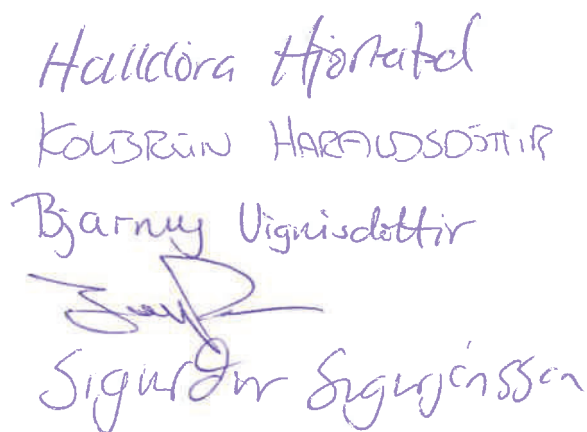 Halldóra Hjartard
KOLBRÚN HARALDSDÓTTIR
Bjarney Vignisdóttir
Sigurður Sigurjónsson